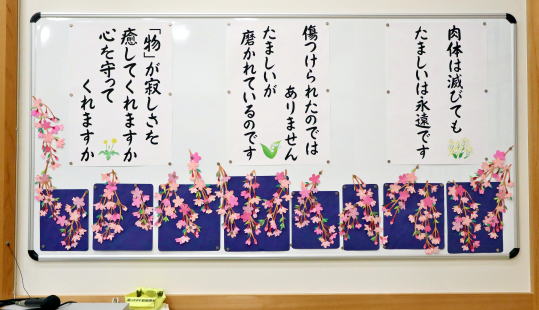 肉体は滅びても
たましいは永遠です
傷つけられたのでは
ありません
たましいが
磨かれているのです
「物」が寂しさを
癒してくれますか
心を守って
くれますか